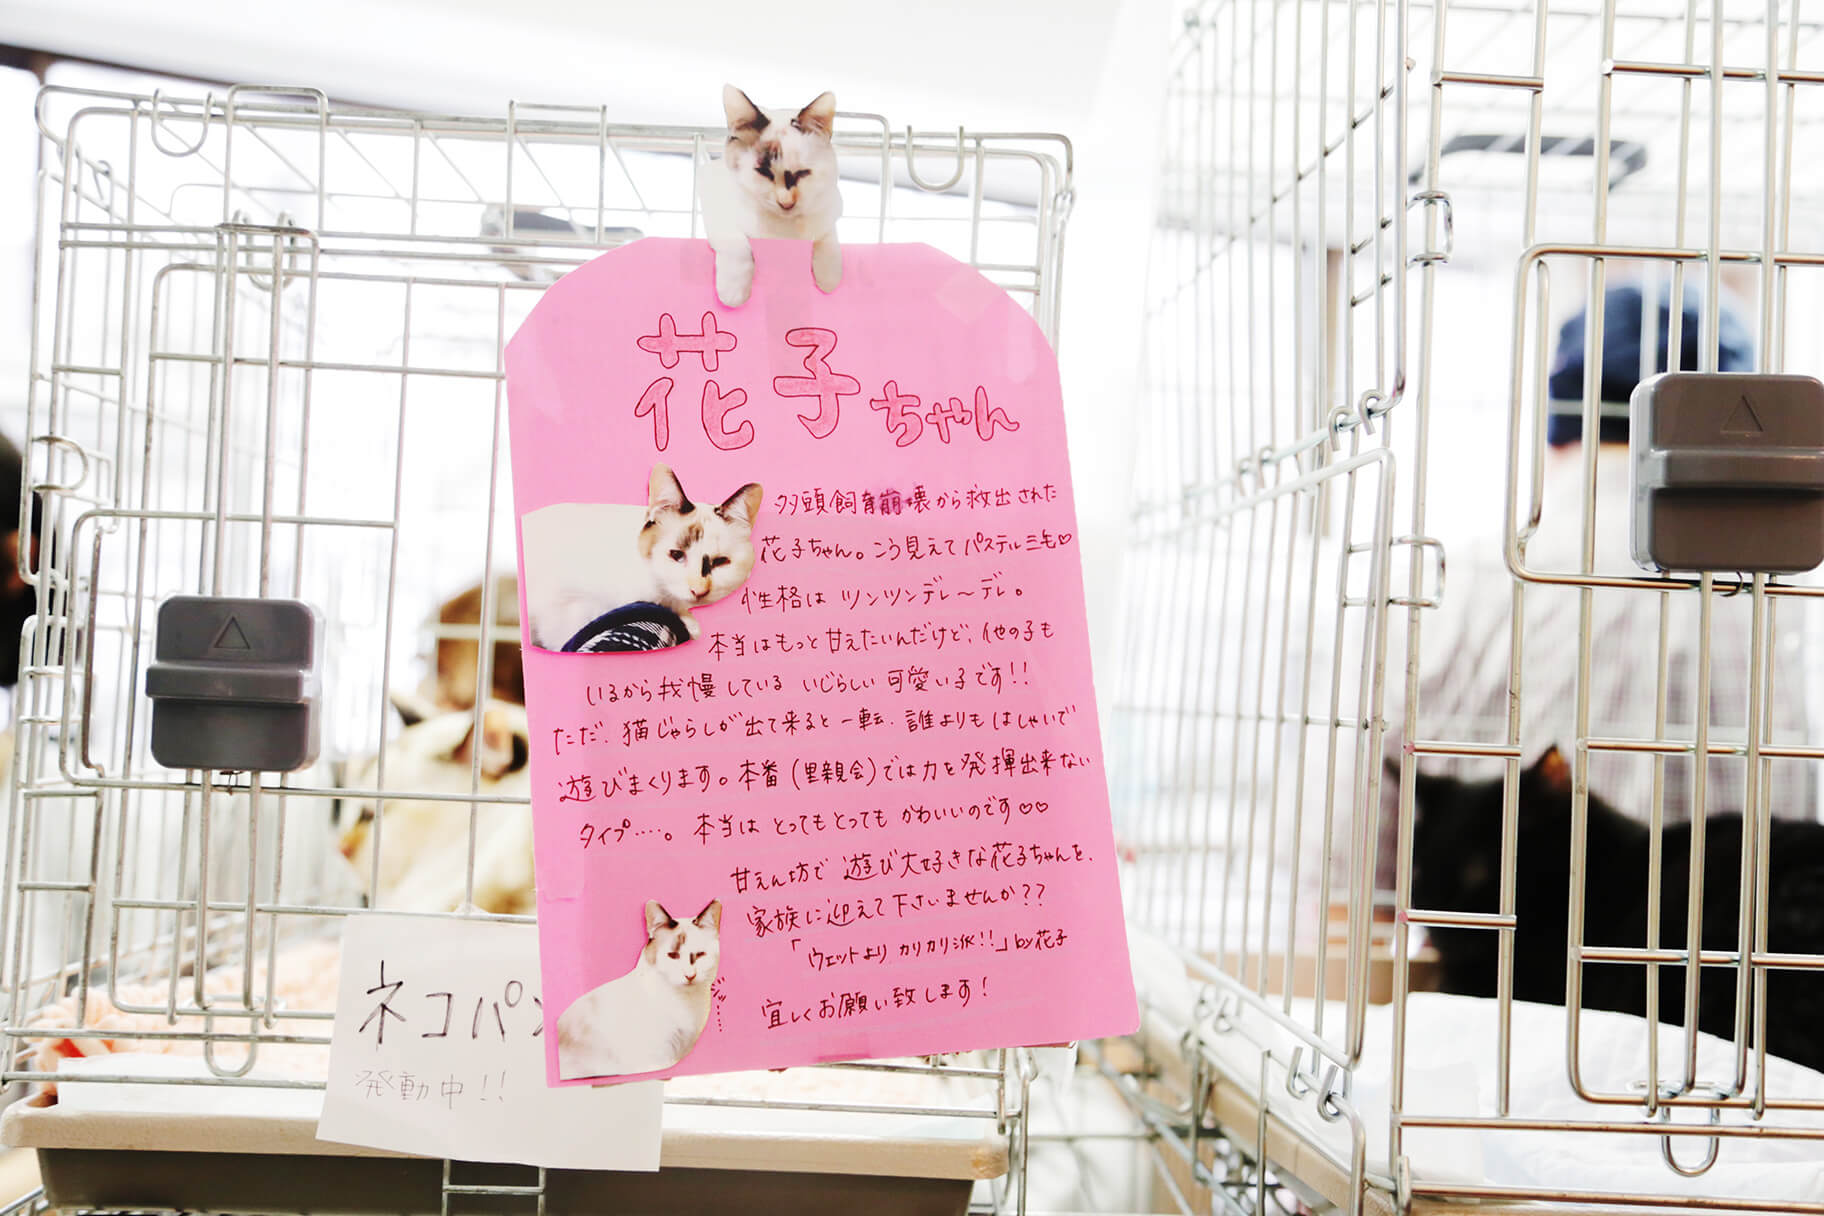 花子ちゃん
多頭飼育崩壊から救出された
花子ちゃん。こう見えてパステル三毛♡
性格はツンツンデレ〜デレ。
本当はもっと甘えたいんだけど、他の子も
いるから我慢している いじらしい可愛い子です!!
ただ、猫じゃらしが出て来ると一転、誰よりもはしゃいで
遊びまくります。本番(里親会)では力を発揮出来ない
タイプ‥‥。本当はとってもとってもかわいいのです♡♡
甘えん坊で遊び大好きな花子ちゃんを、
家族に迎えて下さいませんか??
「ウェットよりカリカリ派!!」by花子
宜しくお願い致します!
ジッ……
ネコパン
発動中!!